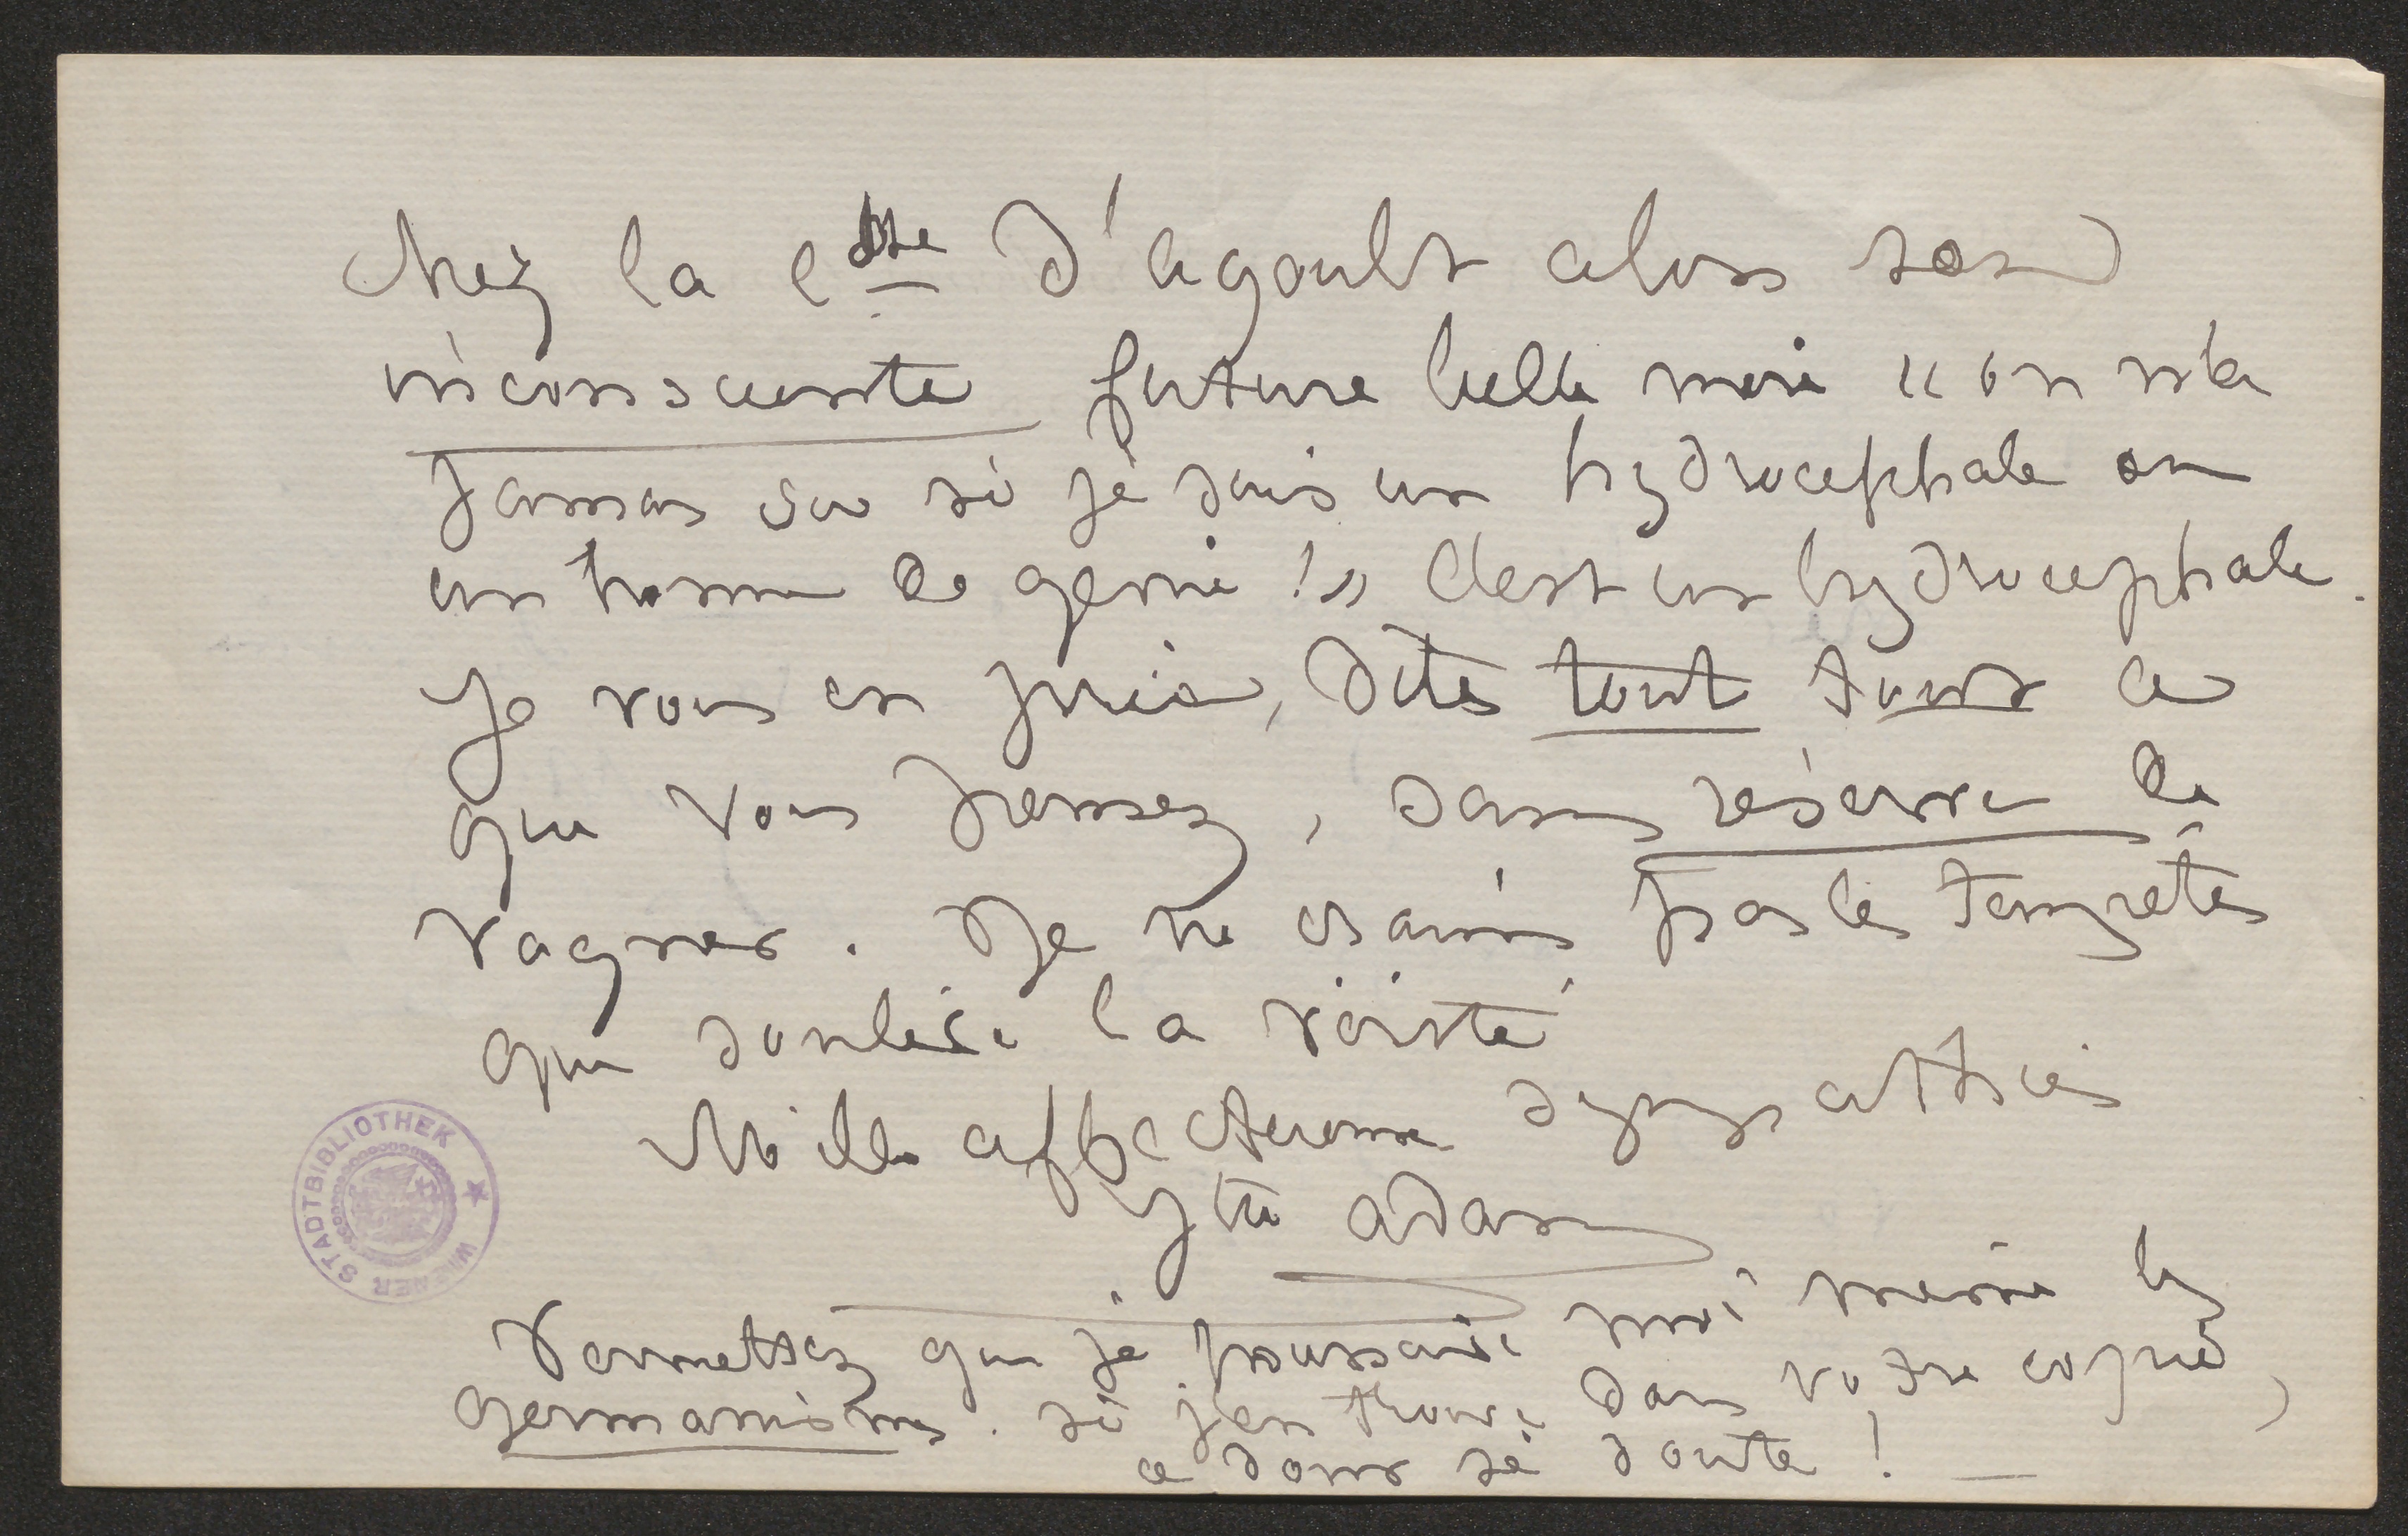 chez la Ctsse d'Agoult alors son
inconsciente future belle mère « on n'a
jamais su si je suis un hydrocephale ou
un homme de génie !» C'est un hydrocephale.
Je vous en prie, dites tout tout ce
que vous pensez, sans réserve de
Vagner. Je ne crains pas les tempetes
que soulève la vérité
Mille affectueuses sympathies
Jtte Adam
Permettez que je poursuive moi même les
germanismes. si j'en trouve dans votre copie,
ce dont je doute ! —
WIENER STADTBIBLIOTHEK